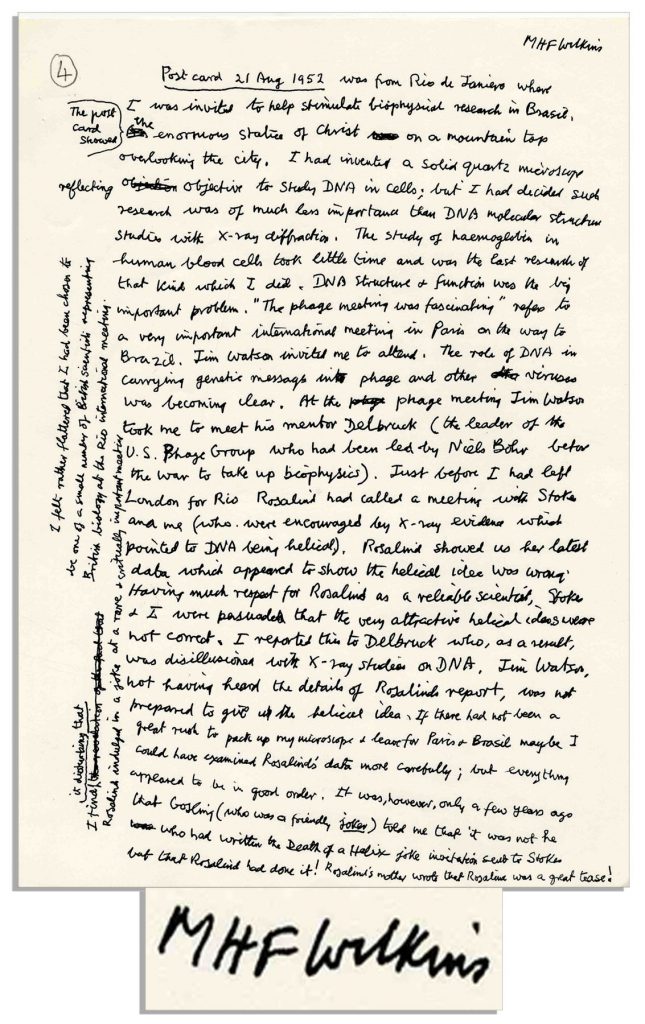 MHF Wilkins
4
Post card 21 Aug 1952 was from Rio de Janiero where
I was invited to help stimulate biophysical research in Brasil.
The post card showed
the enormous statue of Christ on a mountain top
overlooking the city. I had invented a solid quartz microscope
reflecting objective to study DNA in cells; but I had decided such
research was of much less importance than DNA molecular structure
studies with X-ray diffraction. The study of haemoglobin in
human blood cells took little time and was the last research of
that kind which I did. DNA structure & function was the big
important problem. "The phage meeting was fascinating" refers to
a very important international meeting in Paris on the way to
Brazil. Jim Watson invited me to attend. The role of DNA in
carrying genetic message into phage and other viruses
was becoming clear. At the phage meeting Jim Watson
took me to meet his mentor Delbruck (the leader of the
U.S. Phage Group who had been led by Niels Bohr before
the war to take up biophysics). Just before I had left
London for Rio Rosalind had called a meeting with Stokes
and me (who were encouraged by X-ray evidence which
pointed to DNA being helical). Rosalind showed us her latest
data which appeared to show the helical idea was wrong.
Having much respect for Rosalind as a reliable scientist, Stokes
& I were persuaded that the very attractive helical ideas were
not correct. I reported this to Delbruck who, as a result,
was disillusioned with X-ray studies on DNA. Jim Watson,
not having heard the details of Rosalind's report, was not
prepared to give up the helical idea. If there had not been a
great rush to pack up my microscope & leave for Paris & Brasil maybe I
could have examined Rosalind's data more carefully; but everything
appeared to be in good order. It was, however, only a few years ago
that Gosling (who was a friendly joker) told me that it was not he
who had written the Death of a Helix joke invitation sent to Stokes
but that Rosalind had done it! Rosalind's mother wrote that Rosalind was a great tease!
I find it disturbing that
Rosalind indulged in a joke at a rare & critically important meeting
I felt rather flattered that I had been chosen to
be one of a small number of British scientists representing
British biology at the Rio international meeting.
MHF Wilkins